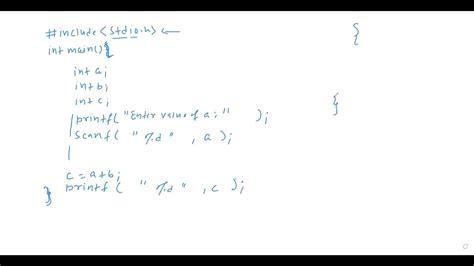 #include<stdio.h> ←
int main(){
int a;
int b;
int c;
printf("Enter value of a:" );
scanf( "%d" , a );
c=a+b;
} printf( "%d" , c );
{
}